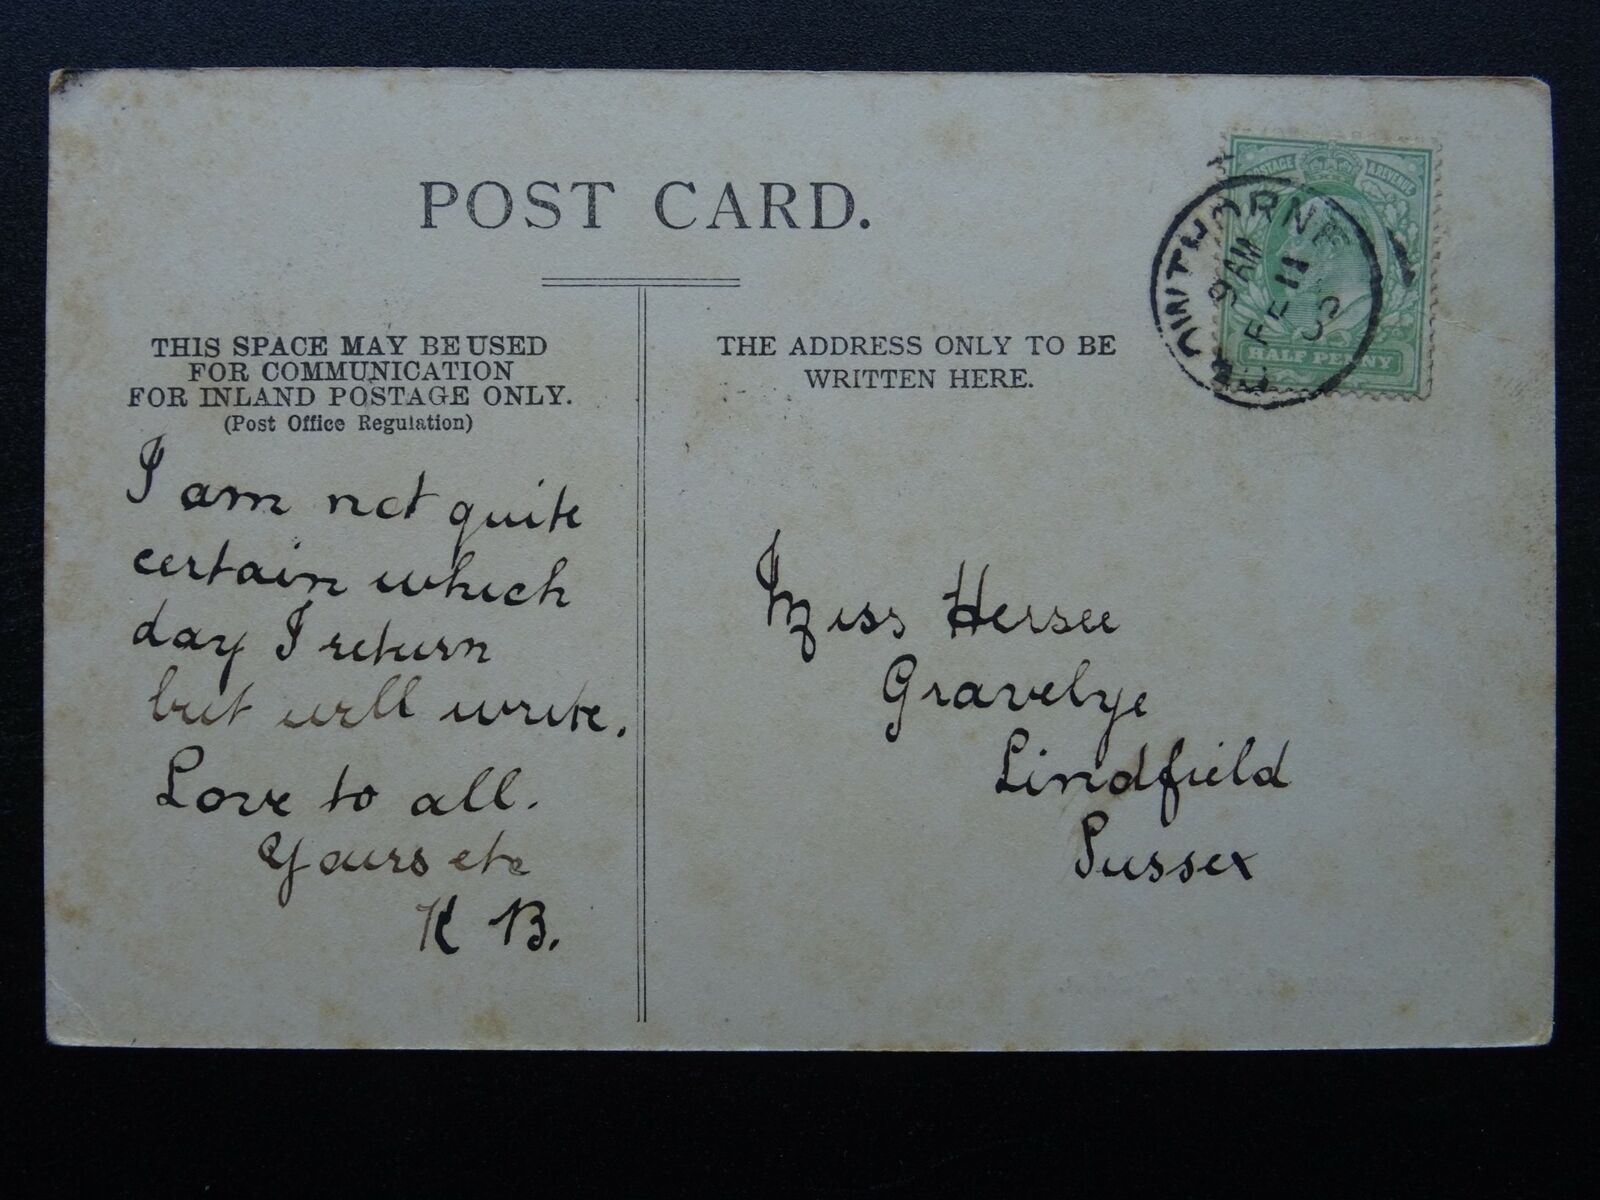 POST CARD.
THIS SPACE MAY BE USED
FOR COMMUNICATION
FOR INLAND POSTAGE ONLY.
(Post Office Regulation)
I am not quite
certain which
day I return
but will write.
Love to all.
Yours etc
K B.
THE ADDRESS ONLY TO BE
WRITTEN HERE.
POSTAGE & REVENUE
HALF PENNY
CROWTHORNE
9 AM
FE 11
Miss Hersee
Gravelye
Lindfield
Sussex